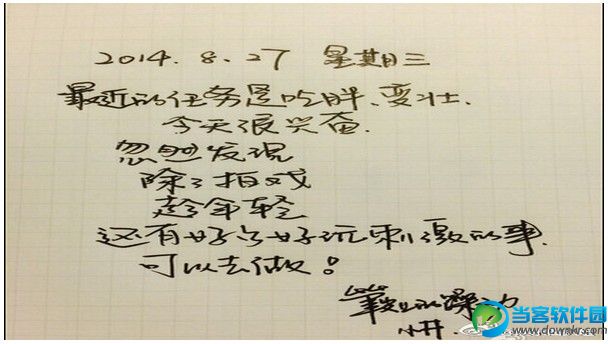 2014. 8. 27 星期三
最近的任务是吃胖、变壮.
今天很兴奋.
忽然发现
除了拍戏
趁年轻
还有好多好玩刺激的事.
可以去做!
的躁动
当客软件园
www.downkr.com